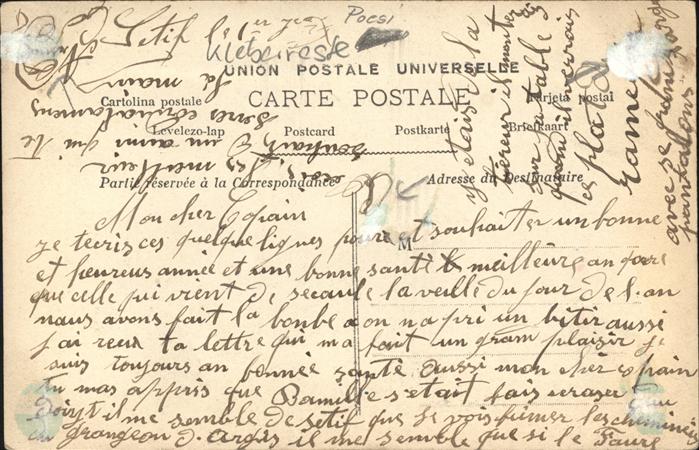 Setif le 1er
Poesi
Klebereste
UNION POSTALE UNIVERSELLE
CARTE POSTALE
Cartolina postale
Tarjeta postal
Levelezo-lap
Postcard
Postkarte
Briefkaart
Partie réservée à la Correspondance
Adresse du Destinataire
M
Mon cher Copain
je tecris ces quelque lignes pour et souhaiter un bonne
et heureus année et une bonne santé meilleure an core
que celle qui vient de secoule la veille du jour de l.an
nous avons fait la bonbe on na pri un bitir aussi
j'ai reçu ta lettre qui ma fait un gram plaisir je
suis toujours an bonnee santé aussi mon cher copain
tu mas appris que Bamille setait fais ecraser
doigt il me semble de setif que je vois fumer les cheminées
grangeon d. argis il me semble que si le Faure
y etais la
sur la table
quand il verrais
ces plat
rame
avec se gram
pantalons
un ami qui te
la main